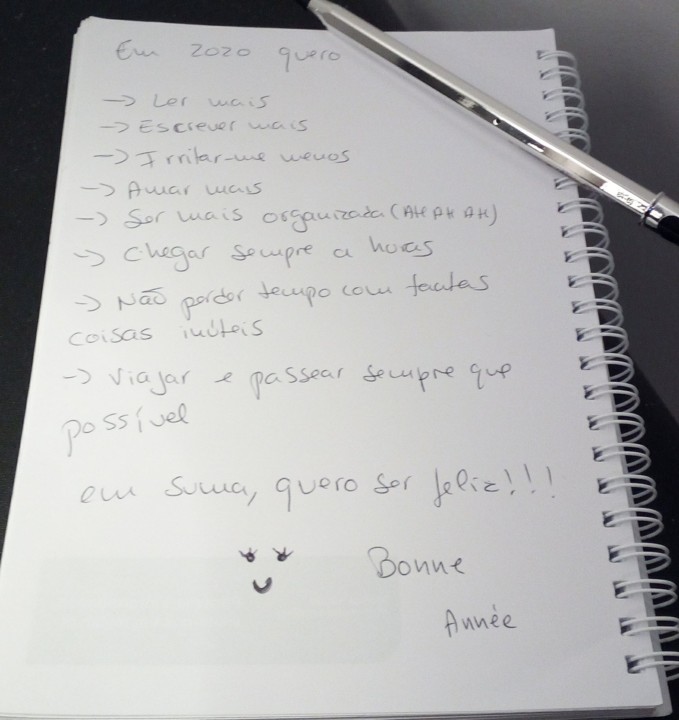 Em 2020 quero
-> Ler mais
-> Escrever mais
-> Irritar-me menos
-> Amar mais
-> Ser mais organizada (AH AH AH)
-> Chegar sempre a horas
-> Não perder tempo com tantas
coisas inúteis
-> Viajar e passear sempre que
possível
em suma, quero ser feliz!!!
Bonne
Année